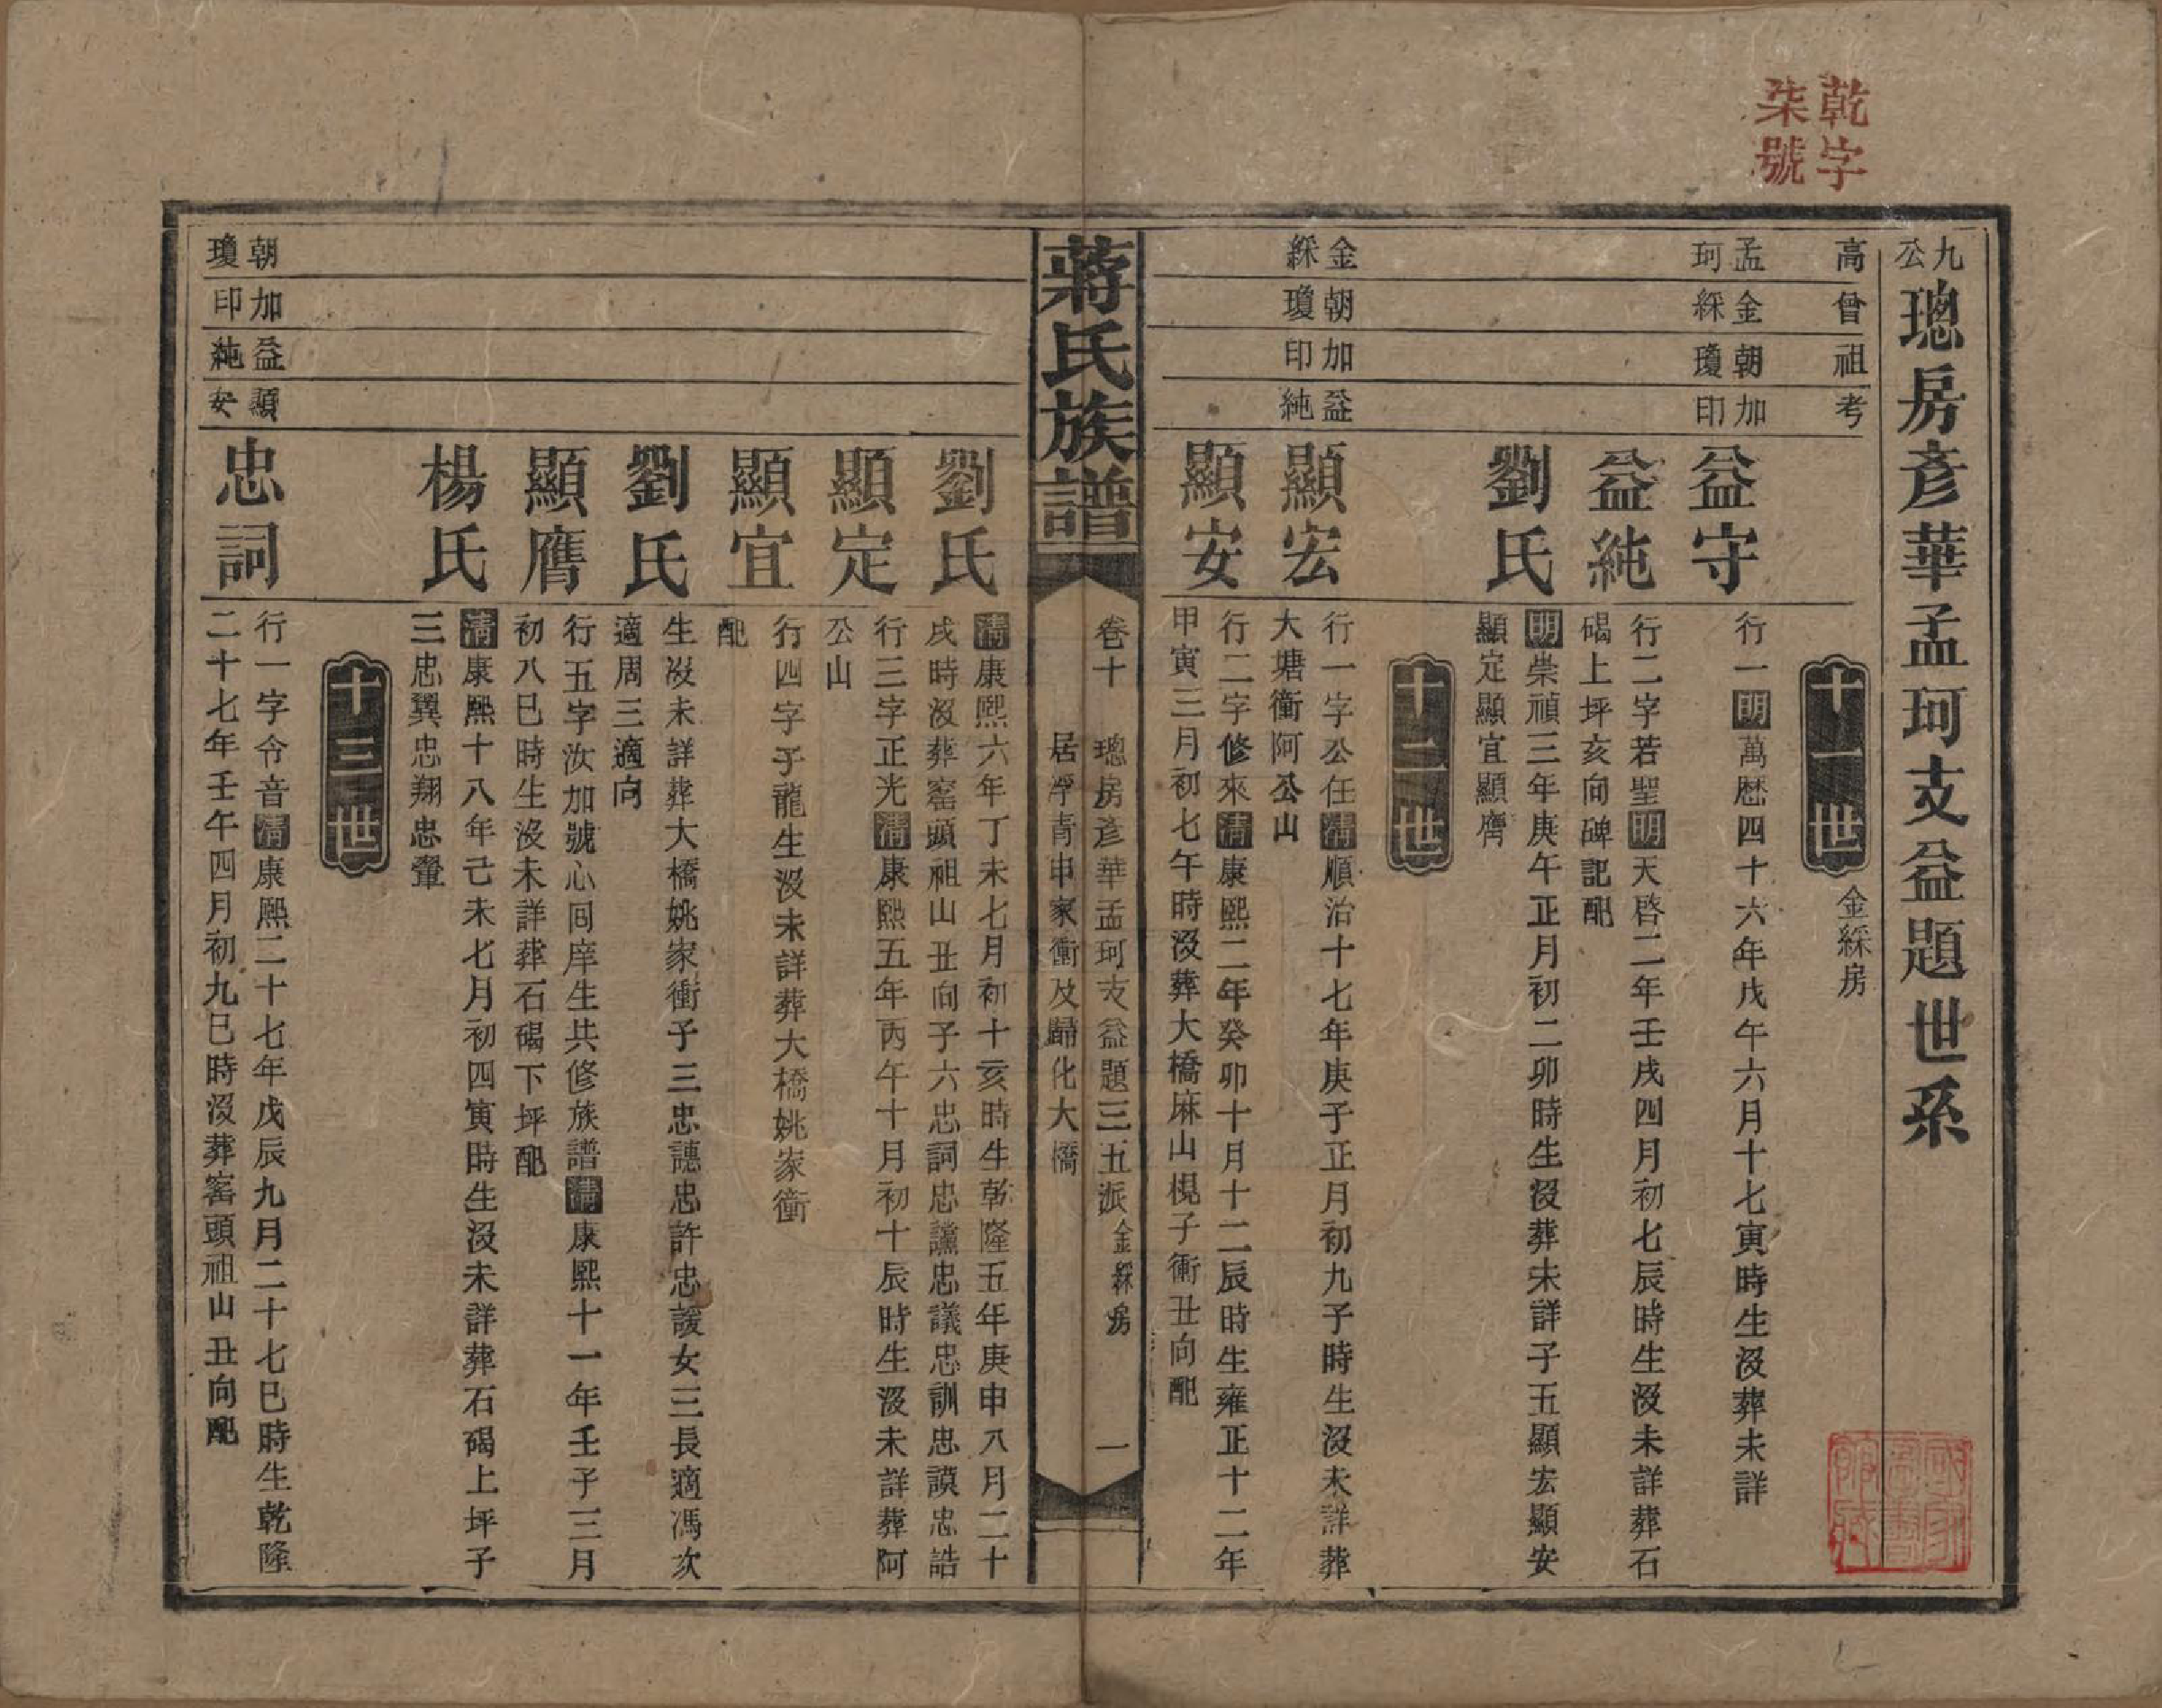 乾字
柒號
九公璁房彥華孟珂支益題世系
高曾祖考
十一世
金綵房
孟珂
金綵
朝瓊
加印
益守
行一明萬歷四十六年戊午六月十七寅時生沒葬未詳
益純
行二字若聖明天啓二年壬戌四月初七辰時生沒未詳葬石
碣上坪亥向碑記配
劉氏
明崇禎三年庚午正月初二卯時生沒葬未詳子五顯宏顯安
顯定顯宜顯膺
十二世
金綵
朝瓊
加印
益純
顯宏
行一字公任清順治十七年庚子正月初九子時生沒未詳葬
大塘衝阿公山
顯安
行二字修來清康熙二年癸卯十月十二辰時生雍正十二年
甲寅三月初七午時沒葬大橋麻山梘子衝丑向配
蔣氏族譜
卷十 璁房彥華孟珂支益題三五派金綵房 一
居浮青申家衝及歸化大橋
劉氏
清康熙六年丁未七月初十亥時生乾隆五年庚申八月二十
戌時沒葬窰頭祖山丑向子六忠詞忠讜忠議忠訓忠謨忠誥
顯定
行三字正光清康熙五年丙午十月初十辰時生沒未詳葬阿
公山
顯宜
行四字子龍生沒未詳葬大橋姚家衝
配
劉氏
生沒未詳葬大橋姚家衝子三忠譓忠許忠諼女三長適馮次
適周三適向
顯膺
行五字汝加號心囘庠生共修族譜清康熙十一年壬子三月
初八巳時生沒未詳葬石碣下坪配
楊氏
清康熙十八年己未七月初四寅時生沒未詳葬石碣上坪子
三忠翼忠翔忠翬
十三世
朝瓊
加印
益純
顯安
忠詞
行一字令音清康熙二十七年戊辰九月二十七巳時生乾隆
二十七年壬午四月初九巳時沒葬窰頭祖山丑向配